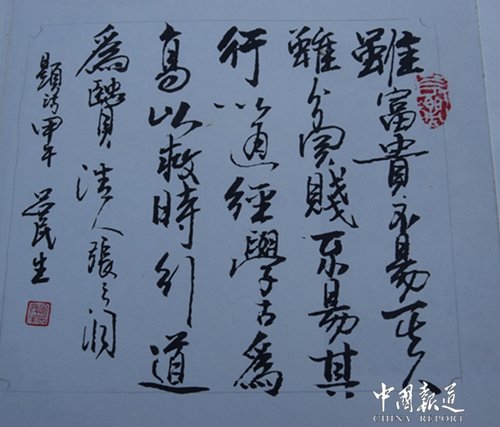 雖富貴不易其心
雖貧賤不易其
行以通經學古為
高以救時行道
為賢 清人張之洞
甲午 民生
中國報道
CHINA REPORT